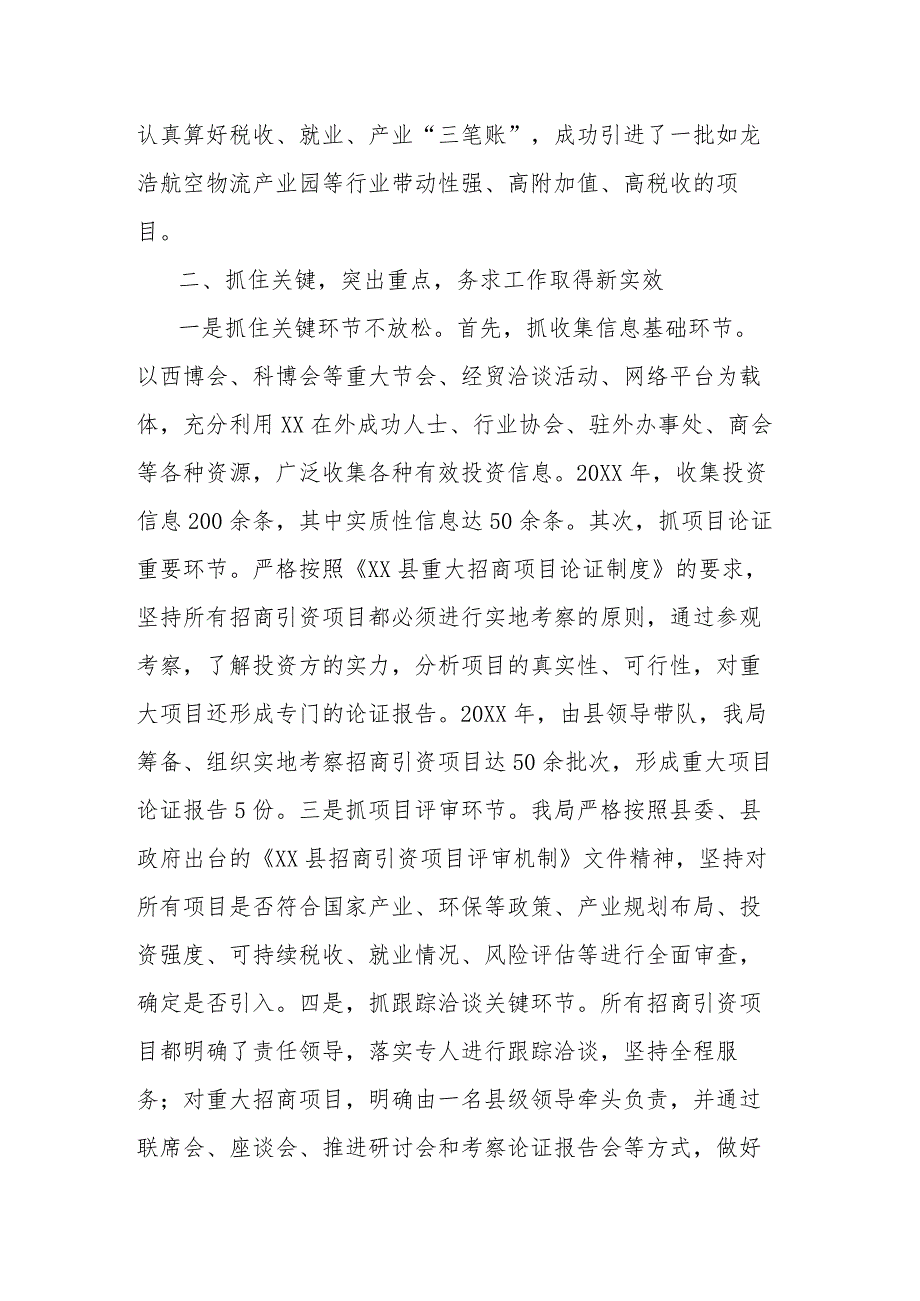 认真算好税收、就业、产业“三笔账”，成功引进了一批如龙
浩航空物流产业园等行业带动性强、高附加值、高税收的项
目。
二、抓住关键，突出重点，务求工作取得新实效
一是抓住关键环节不放松。首先，抓收集信息基础环节。
以西博会、科博会等重大节会、经贸洽谈活动、网络平台为载
体，充分利用 XX 在外成功人士、行业协会、驻外办事处、商会
等各种资源，广泛收集各种有效投资信息。20XX 年，收集投资
信息 200 余条，其中实质性信息达 50 余条。其次，抓项目论证
重要环节。严格按照《XX 县重大招商项目论证制度》的要求，
坚持所有招商引资项目都必须进行实地考察的原则，通过参观
考察，了解投资方的实力，分析项目的真实性、可行性，对重
大项目还形成专门的论证报告。20XX 年，由县领导带队，我局
筹备、组织实地考察招商引资项目达 50 余批次，形成重大项目
论证报告 5 份。三是抓项目评审环节。我局严格按照县委、县
政府出台的《XX 县招商引资项目评审机制》文件精神，坚持对
所有项目是否符合国家产业、环保等政策、产业规划布局、投
资强度、可持续税收、就业情况、风险评估等进行全面审查，
确定是否引入。四是，抓跟踪洽谈关键环节。所有招商引资项
目都明确了责任领导，落实专人进行跟踪洽谈，坚持全程服
务；对重大招商项目，明确由一名县级领导牵头负责，并通过
联席会、座谈会、推进研讨会和考察论证报告会等方式，做好